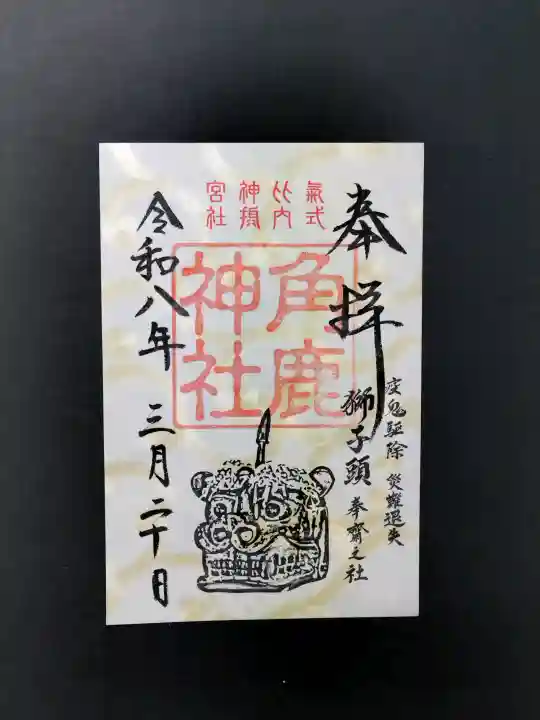 奉拝
疫鬼駆除 災難退失
獅子頭 奉齋之社
氣比神宮
式内摂社
角鹿神社
令和八年 三月二十日